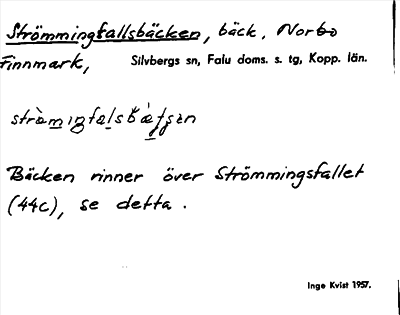 Strömmingfallsbäcken, bäck, Norbo
Finnmark, Silvbergs sn, Falu doms. s. tg, Kopp. län.
Bäcken rinner över Strömmingsfallet
(44c), se detta.
Inge Kvist 1957.